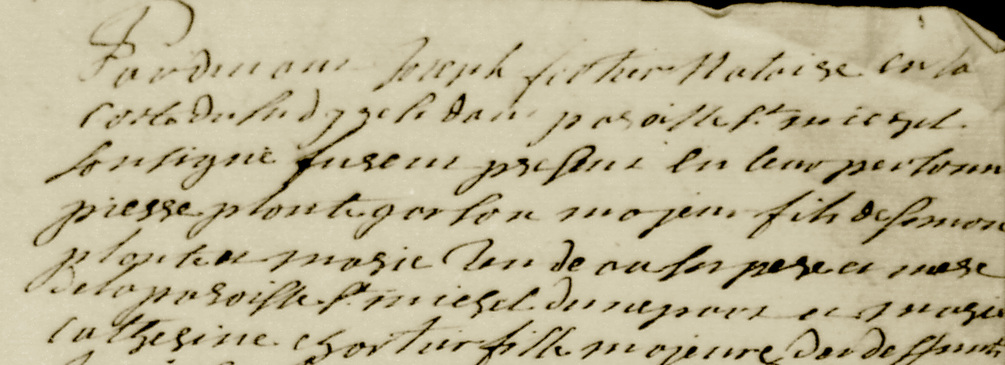 Pardevant Joseph fortier Notaire en la
Coste du sud y resident paroisse St miesel
sousigné furent present en leur personn
pierre plonte garson majeur fils de simon
plonte et marie pere et mere
de la paroisse St miesel dune part et marie
catherine fille majeure de deffunt